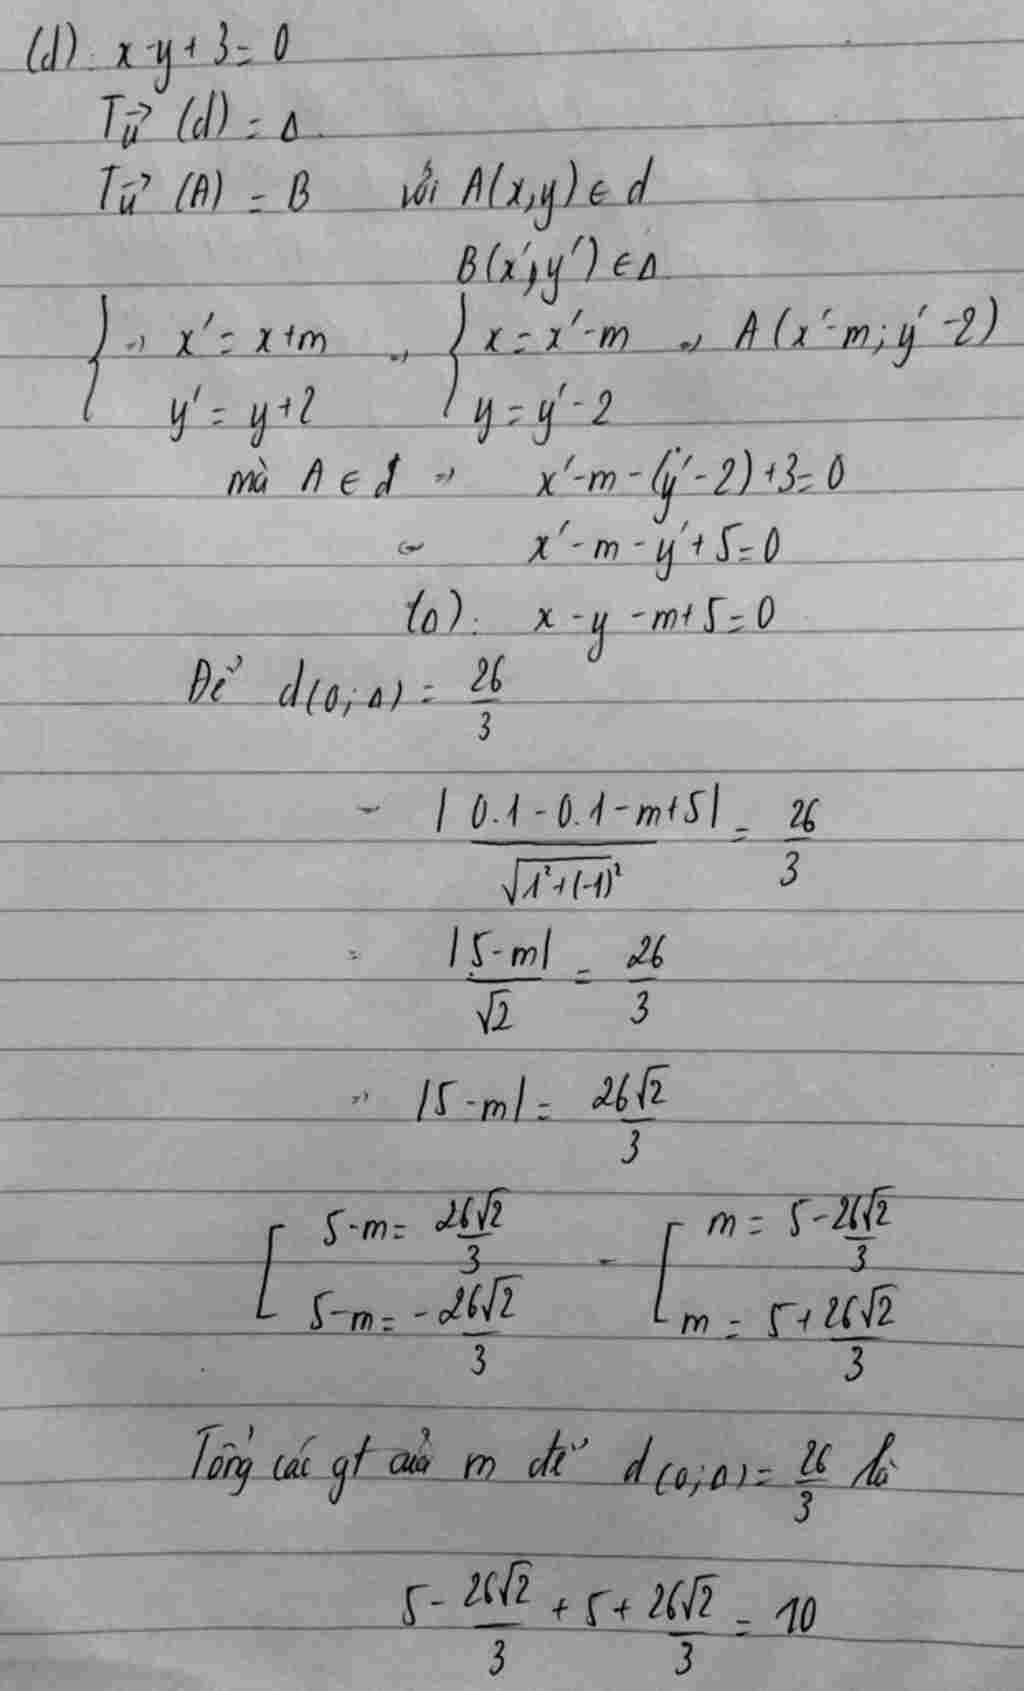 (d): x-y+3=0
Tu⃗ (d) = Δ.
Tu⃗ (A) = B với A(x,y) ∈ d
B(x',y') ∈ Δ
{ => x' = x+m => { x = x'-m => A(x'-m; y'-2)
y' = y+2 y = y'-2
mà A ∈ d => x'-m-(y'-2)+3=0
<=> x'-m-y'+5=0
(Δ): x-y-m+5=0
Để d(0;Δ) = 26/3
|0.1-0.1-m+5| / √(1²+(-1)²) = 26/3
|5-m| / √2 = 26/3
=> |5-m| = 26√2/3
[ 5-m = 26√2/3 [ m = 5-26√2/3
5-m = -26√2/3 m = 5+26√2/3
Tổng các gt của m để d(0;Δ) = 26/3 là
5 - 26√2/3 + 5 + 26√2/3 = 10